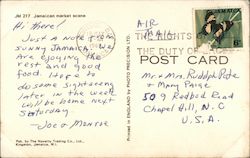 JM 217 Jamaican market scene
Hi there!
Just a note from
sunny Jamaica. We
are enjoying the
rest and good
food. Hope to
do some sightseeing
later in the week.
Will be home next
Saturday.
Joe & Monroe
Pub. by The Novelty Trading Co., Ltd.,
Kingston, Jamaica, W.I.
PRINTED IN ENGLAND BY PHOTO PRECISION LTD.
AIR
MAIL
JAMAICA
THE DUTY OF
POST CARD
Mr & Mrs. Rudolph Pate
& Mary Paige
509 Redbud Road
Chapel Hill, N.C
U.S.A.